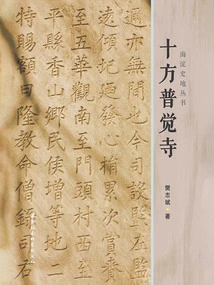 海淀史地丛书
十方普觉寺
樊志斌 著
遍亦無間也今司設監
遠傾圮過發心捕累次賞賚
平縣香山鄉民侯增等地二
至五華觀南至門頭村西至
特賜額曰隆教命僧錄司右